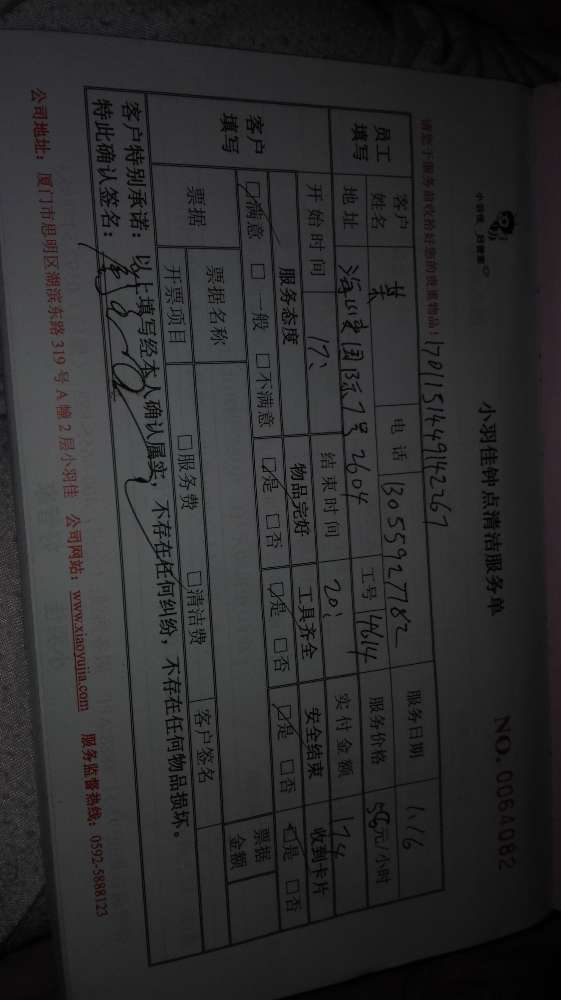 小羽佳钟点清洁服务单
NO. 0064082
请您于服务前收拾好您的贵重物品！
1701151449142267
员工填写 客户姓名 电话 13055927782 服务日期 1.16
地址 国际7号2604 工号 14614 服务价格 58元/小时
开始时间 17: 结束时间 20: 实付金额 174
客户填写 服务态度 物品完好 工具齐全 安全结束 收到卡片
☑满意 □一般 □不满意 ☑是 □否 ☑是 □否 ☑是 □否 ☑是 □否
票据 票据名称 客户签名 票据金额
开票项目 □服务费 □清洁费
客户特别承诺：以上填写经本人确认属实，不存在任何纠纷，不存在任何物品损坏。
特此确认签名：
公司地址：厦门市思明区湖滨东路319号A幢2层小羽佳 公司网站：www.xiaoyujia.com 服务监督热线：0592-5888123